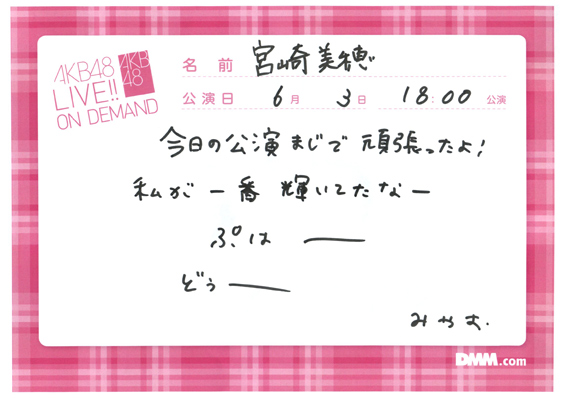 AKB48
LIVE!!
ON DEMAND
AKB
48
名前 宮崎美穂
公演日 6月 3日 18:00 公演
今日の公演まじで頑張ったよ!
私が一番輝いてたなー
ぷは ——
どぅ ——
みゃお.
DMM.com